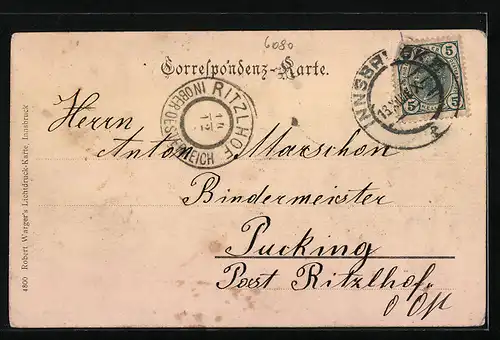 6080
Correspondenz-Karte.
INNSBRUCK
5 5
5 5
RITZLHOF
IN OBER OESTERREICH
Herrn
Anton Marschon
Bindermeister
Pucking
Post Ritzlhof.
O Öst
4800 Robert Warger's Lichtdruck-Karte, Innsbruck